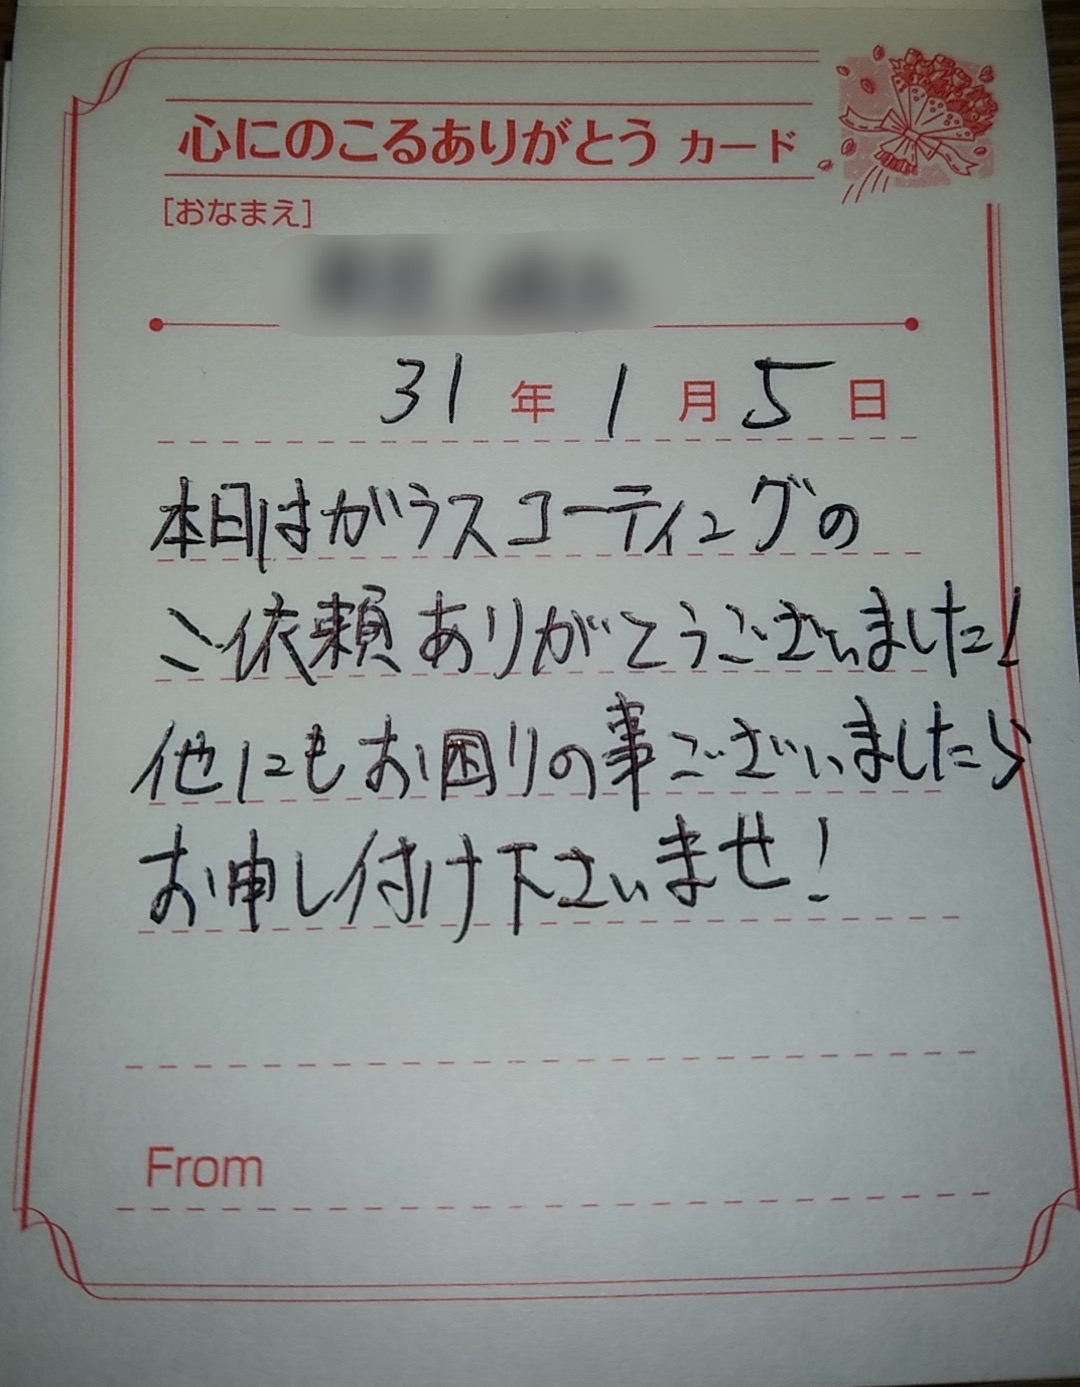 心にのこるありがとう カード
[おなまえ]
31年1月5日
本日はガラスコーティングの
ご依頼ありがとうございました!
他にもお困りの事ございましたら
お申し付け下さいませ!
From